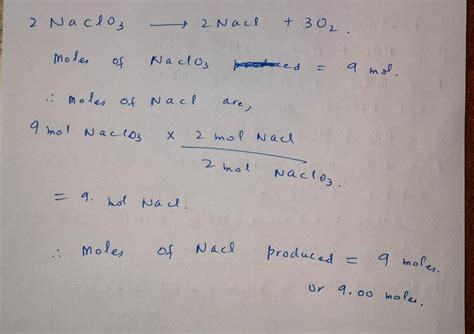 2 NaClO3 ⟶ 2 NaCl + 3O2.
Moles of NaClO3 = 9 mol.
∴ Moles of NaCl are,
9 mol NaClO3 × 2 mol NaCl
2 mol NaClO3.
= 9. mol NaCl.
∴ Moles of NaCl produced = 9 moles.
or 9.00 moles.